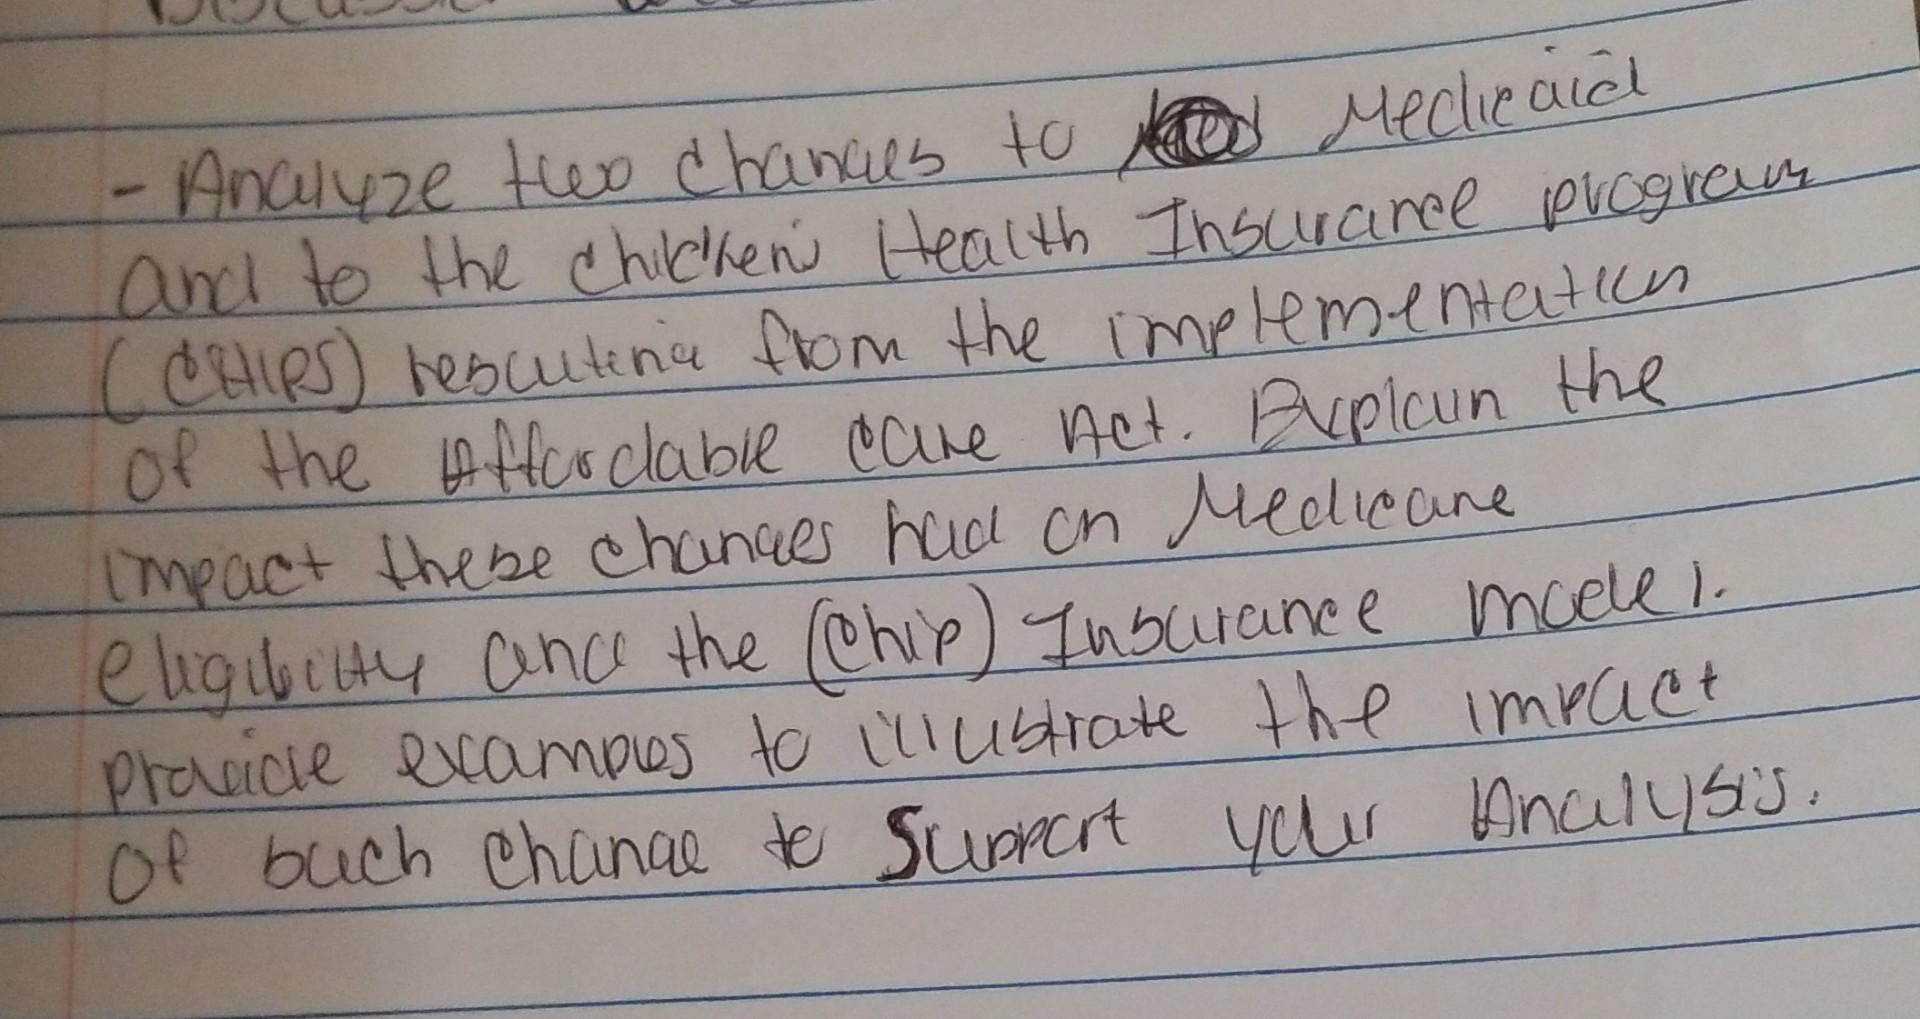 - Analyze two changes to Medicaid
and to the children's Health Insurance program
(CHIPS) resulting from the implementation
of the Affordable care Act. Explain the
impact these changes had on Medicare
eligibility and the (Chip) Insurance model.
provide examples to illustrate the impact
of such change to Support your Analysis.